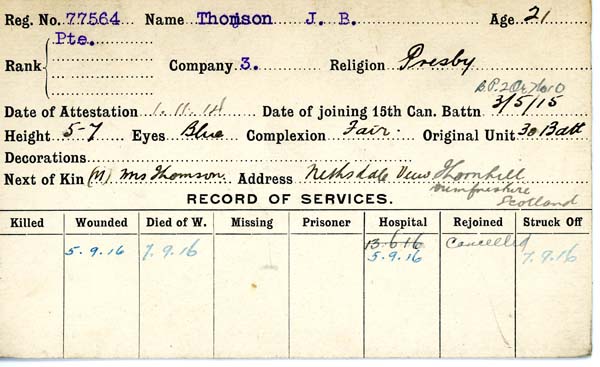 Reg. No. 77564 Name Thomson J. B. Age 21
Pte.
Rank Company 3. Religion Presby
Date of Attestation 1.11.14 Date of joining 15th Can. Battn 3/5/15
Height 5-7 Eyes Blue Complexion Fair. Original Unit 30 Batt
Decorations
Next of Kin (M) Mrs Thomson. Address Nithsdale View Thornhill
Dumfriesshire
Scotland
RECORD OF SERVICES.
Killed Wounded Died of W. Missing Prisoner Hospital Rejoined Struck Off
13.6.16 Cancelled
5.9.16 7.9.16 5.9.16 7.9.16